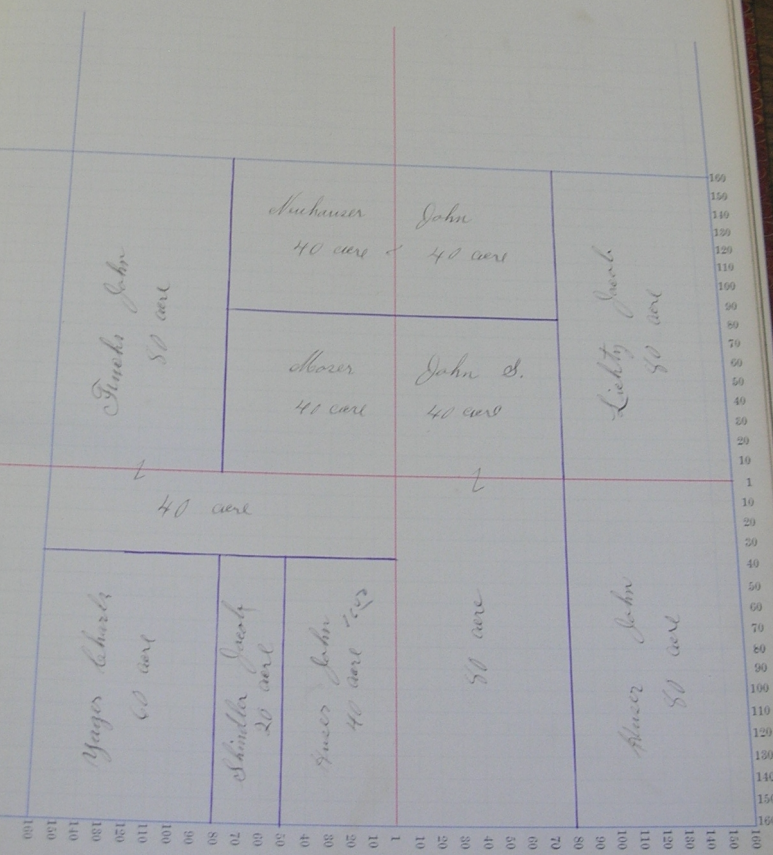 Neuhauser John
40 acre 40 acre
John
80 acre
Moser John S.
40 acre 40 acre
Liechty Jacob
80 acre
40 acre
Yager Charls
60 acre
Shindler Jacob
20 acre
John
40 acre
80 acre
John
80 acre
160
150
140
130
120
110
100
90
80
70
60
50
40
30
20
10
1
10
20
30
40
50
60
70
80
90
100
110
120
130
140
150
160
160 150 140 130 120 110 100 90 80 70 60 50 40 30 20 10 1 10 20 30 40 50 60 70 80 90 100 110 120 130 140 150 160